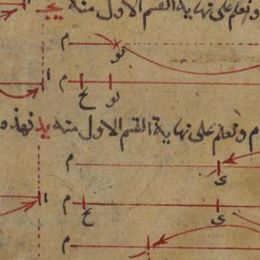 ونعلم على نهاية القسم الاول منه يج
م نو
ا م ح نو
م ونعلم على نهاية القسم الاول منه يد فهذه
م ى
ا م ح ى
م